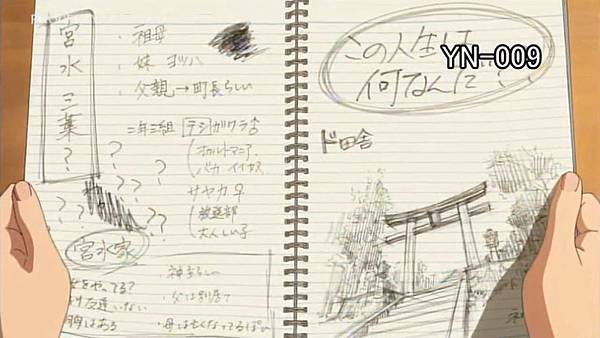 宮水三葉?
・祖母
・妹 ヨツハ
・父親→町長らしい
二年三組
テシガワラ♂
オカルトマニア
バカ イイヤス
サヤカ♀
放送部
大人しい子
? ? ? ? ? ? ?
宮水家
・神主らしい
友達いない
胸はある
・父は別居
・母は亡くなってるぽい
この人生は
何なんだ?
YN-009
ド田舎